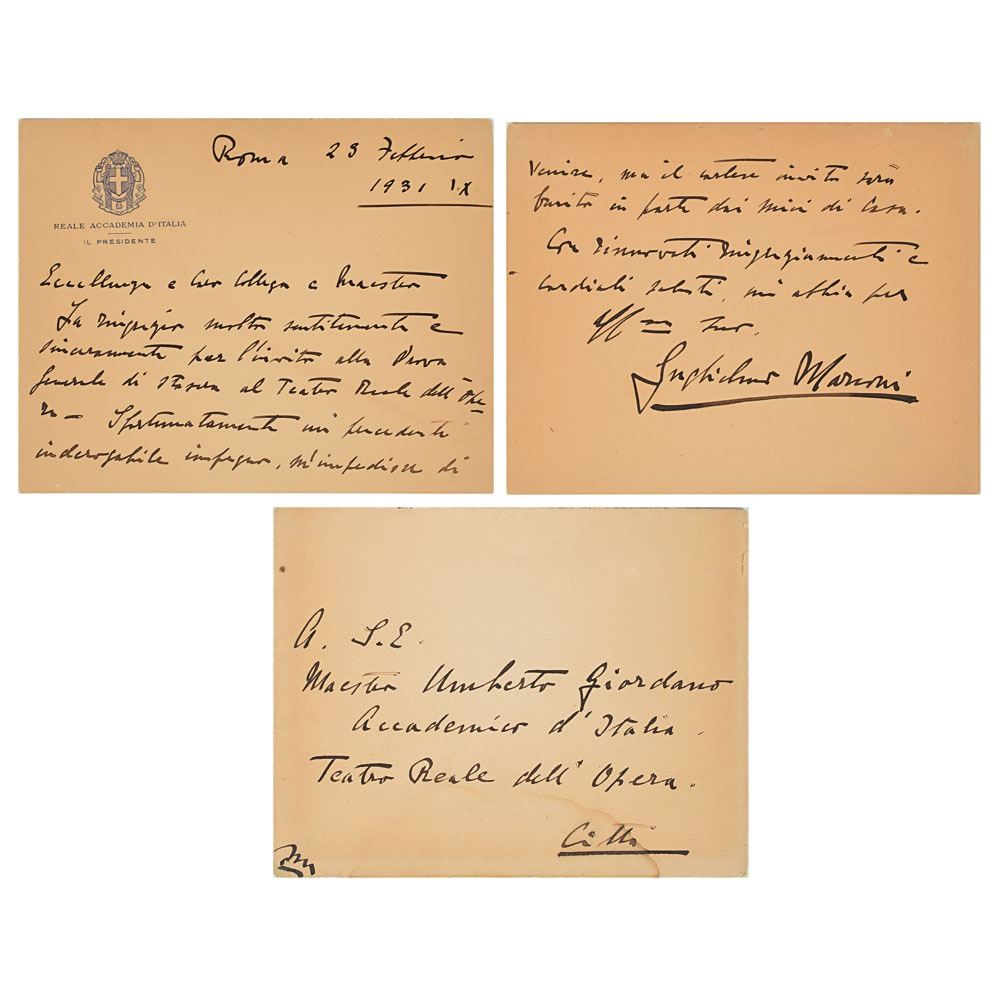 Roma 23 Febbraio
1931 IX
REALE ACCADEMIA D'ITALIA
IL PRESIDENTE
Eccellenza e Caro Collega e Maestro
La ringrazio molto sentitamente e
sinceramente per l'invito alla Prova
Generale di stasera al Teatro Reale dell'Ope-
ra - Sfortunatamente un precedente
inderogabile impegno, m'impedisce di
venire, ma il cortese invito sarà
fruito in parte dai miei di Casa.
Con rinnovati ringraziamenti e
cordiali saluti, mi abbia per
Suo.
Guglielmo Marconi
A. S.E.
Maestro Umberto Giordano
Accademico d'Italia.
Teatro Reale dell'Opera.
Città